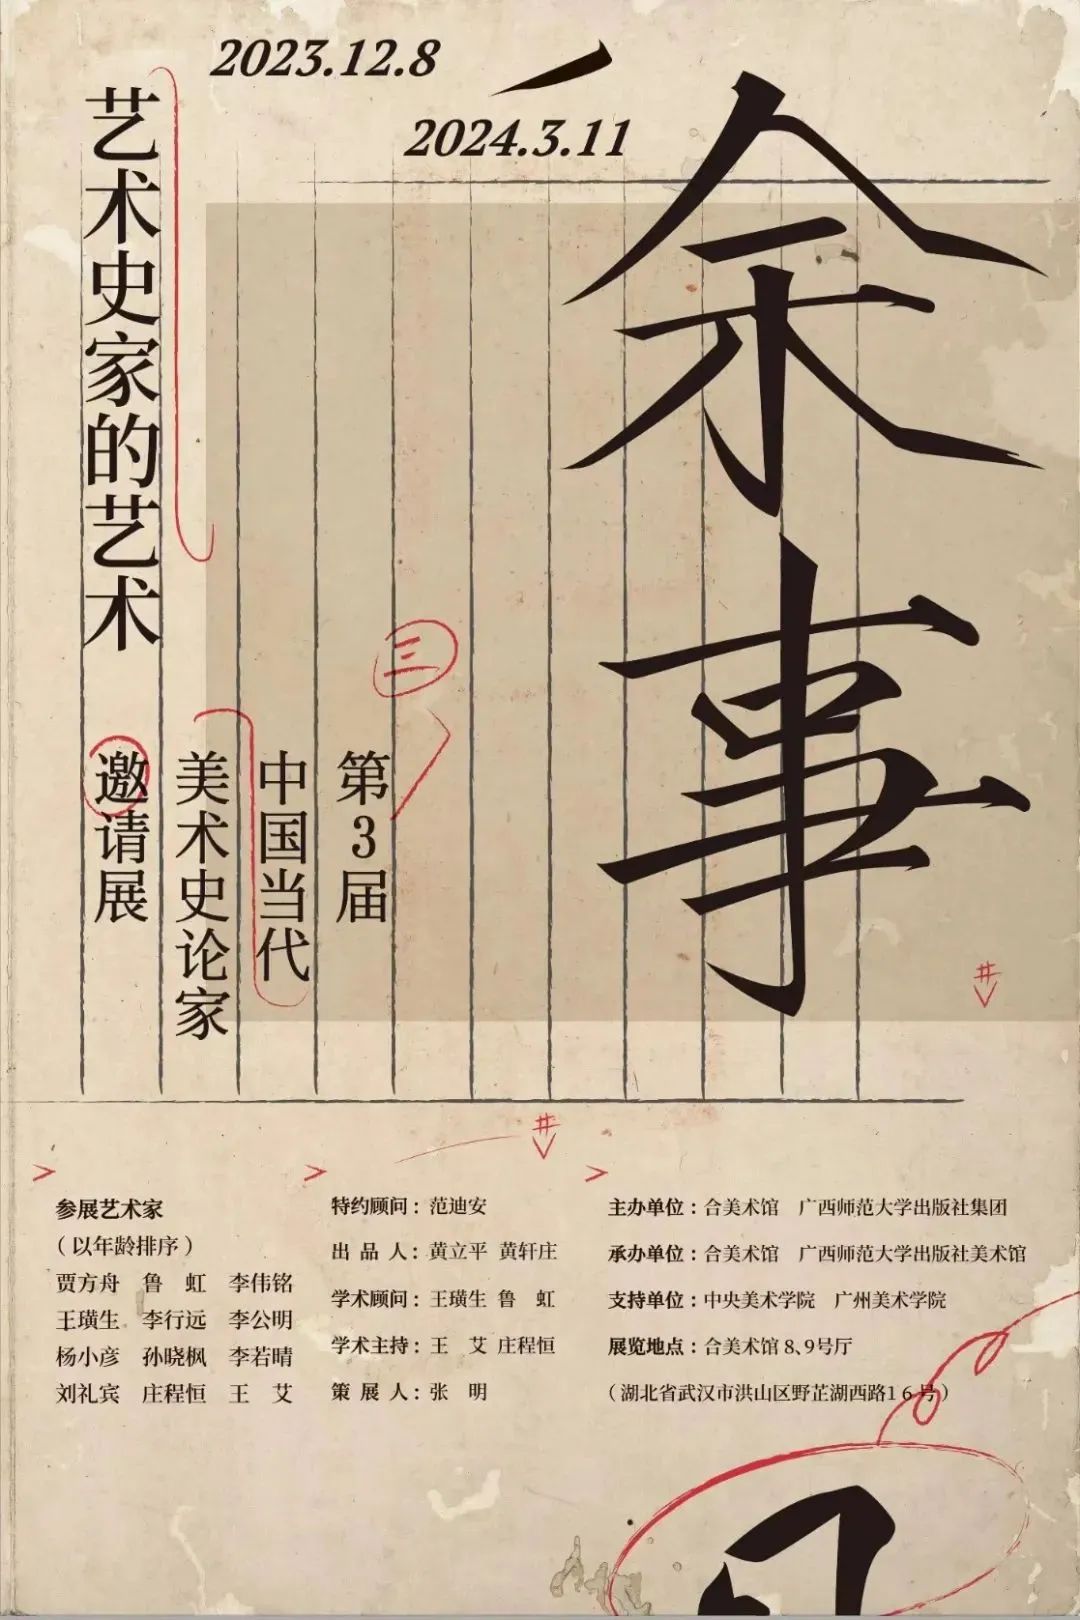 2023.12.8
2024.3.11
余事
艺术史家的艺术
第3届
中国当代
美术史论家
邀请展
三
井
井
参展艺术家
（以年龄排序）
贾方舟 鲁 虹 李伟铭
王璜生 李行远 李公明
杨小彦 孙晓枫 李若晴
刘礼宾 庄程恒 王 艾
特约顾问：范迪安
出 品 人：黄立平 黄轩庄
学术顾问：王璜生 鲁 虹
学术主持：王 艾 庄程恒
策 展 人：张 明
主办单位：合美术馆 广西师范大学出版社集团
承办单位：合美术馆 广西师范大学出版社美术馆
支持单位：中央美术学院 广州美术学院
展览地点：合美术馆 8、9号厅
（湖北省武汉市洪山区野芷湖西路16号）